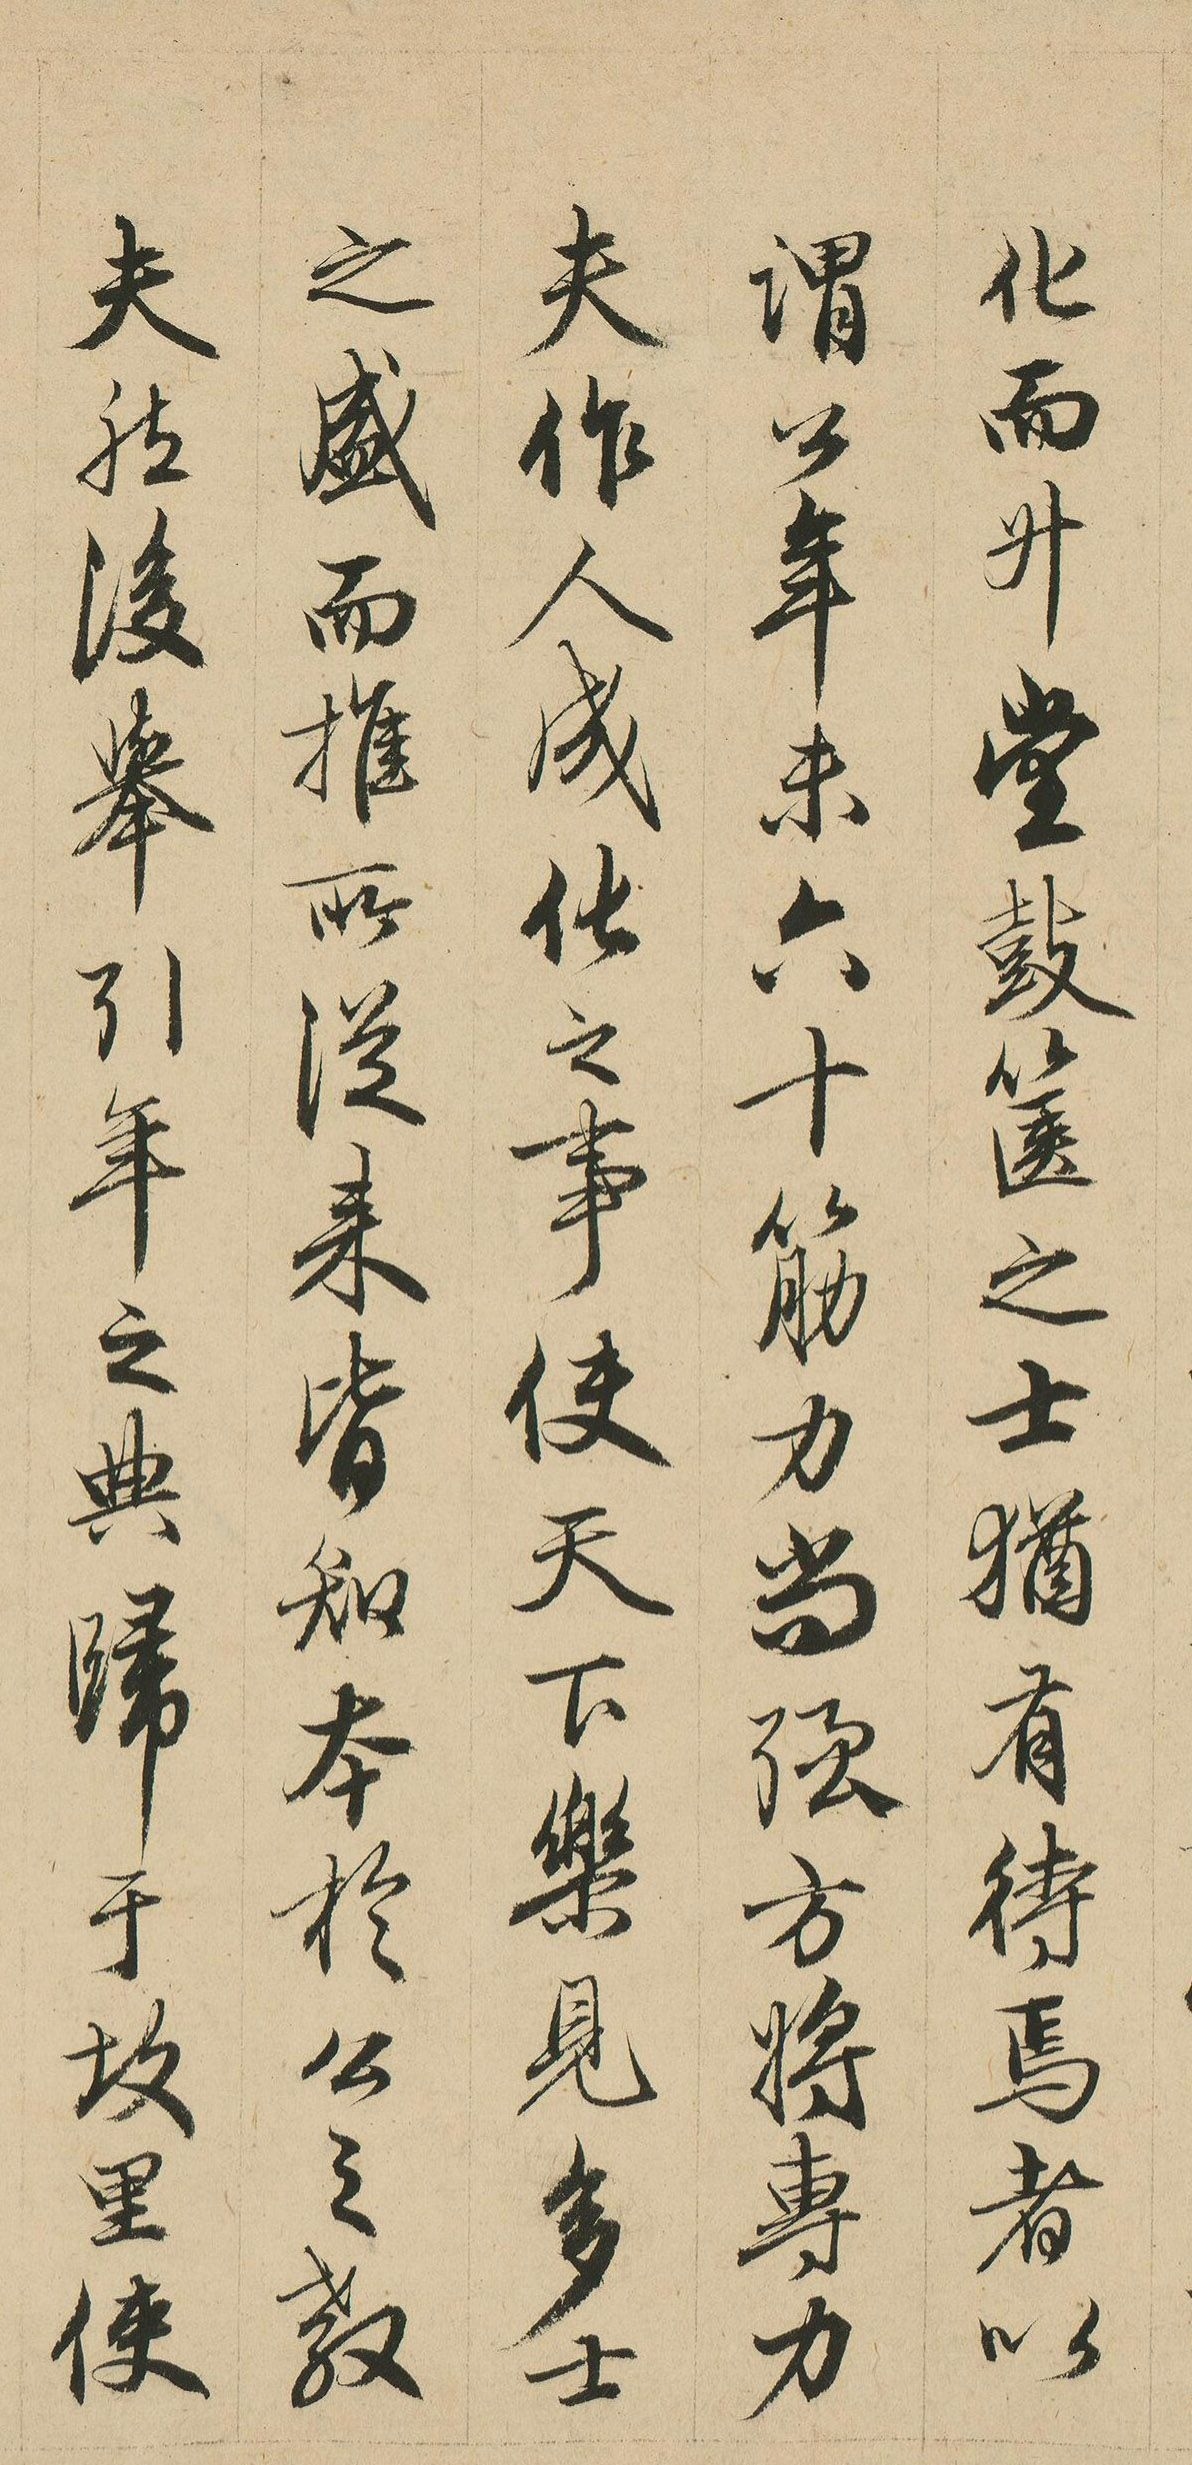 化而升堂鼓篋之士猶有待焉者以
謂公年未六十筋力尚强方將專力
夫作人成化之事使天下樂見多士
之盛而推所從来皆知本於公之教
夫然後舉引年之典歸于故里使